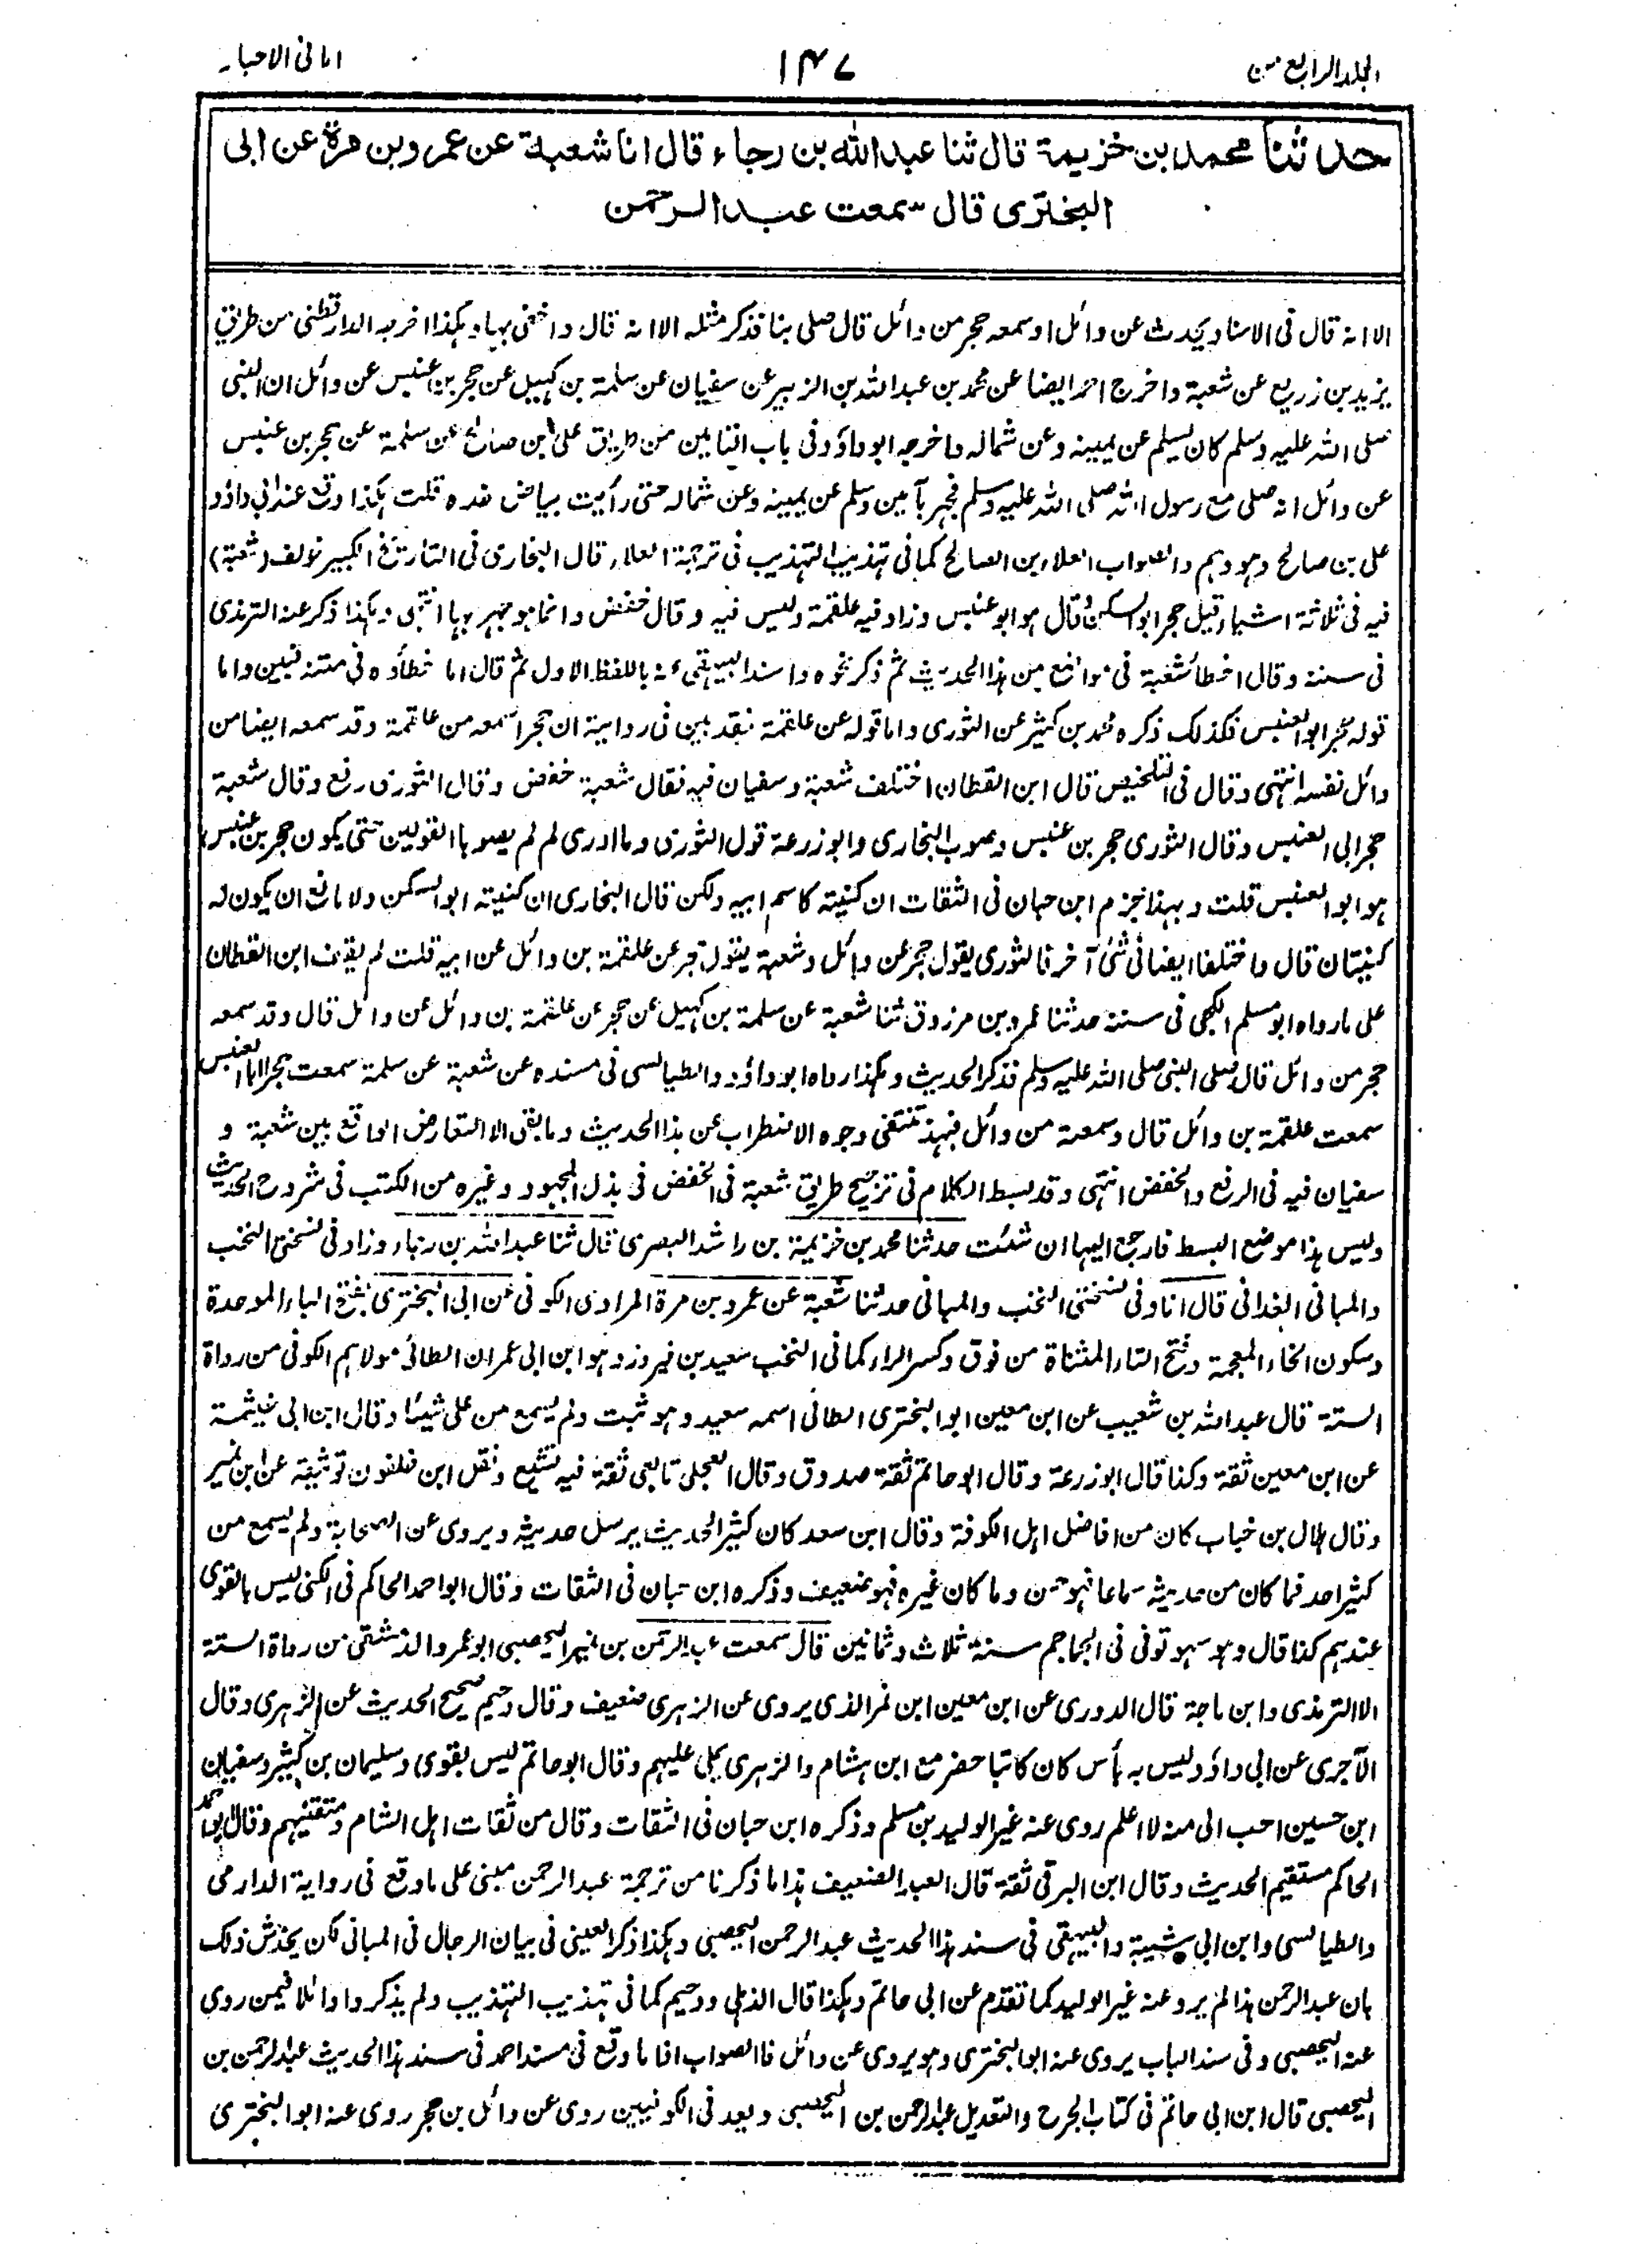 المجلد الرابع من
١٤٧
امانی الاحبار
حدثنا محمد بن خزیمة قال ثنا عبدالله بن رجاء قال انا شعبة عن عمرو بن مرة عن ابی
البختری قال سمعت عبدالرحمن
الا انه قال فی الاسناد یحدث عن وائل او سمعه حجر من وائل قال صلی بنا فذکر مثله الا انه قال واخفی بها وهکذا اخرجه الدارقطنی من طریق
یزید بن زریع عن شعبة واخرج احمد ایضا عن محمد بن عبدالله بن الزبیر عن سفیان عن سلمة بن کهیل عن حجر بن عنبس عن وائل ان النبی
صلی الله علیه وسلم کان یسلم عن یمینه وعن شماله واخرجه ابوداؤد فی باب التامین من طریق علی بن صالح عن سلمة عن حجر بن عنبس
عن وائل انه صلی مع رسول الله صلی الله علیه وسلم فجهر بآمین وسلم عن یمینه وعن شماله حتی رأیت بیاض خده قلت هکذا وقع عند ابی داؤد
علی بن صالح وهو وهم والصواب العلاء بن الصالح کما فی تهذیب التهذیب فی ترجمة العلاء قال البخاری فی التاریخ الکبیر خولف (شعبة)
فیه فی ثلاثة اشیاء قیل حجر ابو السکن وقال هو ابو عنبس وزاد فیه علقمة ولیس فیه وقال خفض وانما هو جهر بها انتهی وهکذا ذکر عنه الترمذی
فی سننه وقال اخطأ شعبة فی مواضع من هذا الحدیث ثم ذکر نحوه واسند البیهقی عنه باللفظ الاول ثم قال اما خطأوه فی متنه فبین واما
قوله حجر ابو العنبس فکذلک ذکره محمد بن کثیر عن الثوری واما قوله عن علقمة فقد بین فی روایته ان حجرا سمعه من علقمة وقد سمعه ایضا من
وائل نفسه انتهی وقال فی التلخیص قال ابن القطان اختلف شعبة وسفیان فیه فقال شعبة خفض وقال الثوری رفع وقال شعبة
حجر ابی العنبس وقال الثوری حجر بن عنبس وصوب البخاری وابو زرعة قول الثوری وما ادری لم لم یصوبا القولین حتی یکون حجر بن عنبس
هو ابو العنبس قلت وبهذا جزم ابن حبان فی الثقات ان کنیته کاسم ابیه ولکن قال البخاری ان کنیته ابو السکن ولا مانع ان یکون له
کنیتان قال واختلفا ایضا فی شئ آخر فالثوری یقول حجر عن وائل وشعبة یقول حجر عن علقمة بن وائل عن ابیه قلت لم یقف ابن القطان
علی ما رواه ابو مسلم الکجی فی سننه حدثنا عمرو بن مرزوق ثنا شعبة عن سلمة بن کهیل عن حجر عن علقمة بن وائل عن وائل قال وقد سمعه
حجر من وائل قال صلی النبی صلی الله علیه وسلم فذکر الحدیث وهکذا رواه ابوداؤد والطیالسی فی مسنده عن شعبة عن سلمة سمعت حجرا ابا العنبس
سمعت علقمة بن وائل قال وسمعته من وائل فبهذا تنتفی وجوه الاضطراب عن هذا الحدیث وما بقی الا التعارض الواقع بین شعبة و
سفیان فیه فی الرفع والخفض انتهی وقد بسط الکلام فی ترجیح طریق شعبة فی الخفض فی بذل المجهود وغیره من الکتب فی شروح الحدیث
ولیس هذا موضع البسط فارجع الیها ان شئت حدثنا محمد بن خزیمة بن راشد البصری قال ثنا عبدالله بن رجاء وزاد فی نسختی النخب
والمبانی الغدانی قال انا وفی نسختی النخب والمبانی حدثنا شعبة عن عمرو بن مرة المرادی الکوفی عن ابی البختری بفتح الباء الموحدة
وسکون الخاء المعجمة وفتح التاء المثناة من فوق وکسر الراء کما فی النخب سعید بن فیروز وهو ابن ابی عمران الطائی مولاهم الکوفی من رواة
الستة قال عبدالله بن شعیب عن ابن معین ابو البختری الطائی اسمه سعید وهو ثبت ولم یسمع من علی شیئا وقال ابن ابی خیثمة
عن ابن معین ثقة وکذا قال ابو زرعة وقال ابو حاتم ثقة صدوق وقال العجلی تابعی ثقة فیه تشیع ونقل ابن خلفون توثیقه عن ابن نمیر
وقال هلال بن خباب کان من افاضل اهل الکوفة وقال ابن سعد کان کثیر الحدیث یرسل حدیثه ویروی عن الصحابة ولم یسمع من
کثیر احد فما کان من حدیثه سماعا فهو حسن وما کان غیره فهو ضعیف وذکره ابن حبان فی الثقات وقال ابو احمد الحاکم فی الکنی لیس بالقوی
عندهم کذا قال وهو سهو توفی فی الجماجم سنة ثلاث وثمانین قال سمعت عبدالرحمن بن نمر الیحصبی ابو عمرو الدمشقی من رواة الستة
الا الترمذی وابن ماجة قال الدوری عن ابن معین ابن نمر الذی یروی عن الزهری ضعیف وقال دحیم صحیح الحدیث عن الزهری وقال
الآجری عن ابی داؤد لیس به بأس کان کاتبا حضر مع ابن هشام والزهری یملی علیهم وقال ابو حاتم لیس بقوی وسلیمان بن کثیر وسفیان
ابن حسین احب الی منه لا اعلم روی عنه غیر الولید بن مسلم وذکره ابن حبان فی الثقات وقال من ثقات اهل الشام ومتقنیهم وقال ابو احمد
الحاکم مستقیم الحدیث وقال ابن البرقی ثقة قال العبد الضعیف هذا ما ذکرنا من ترجمة عبدالرحمن مبنی علی ما وقع فی روایة الدارمی
والطیالسی وابن ابی شیبة والبیهقی فی سند هذا الحدیث عبدالرحمن الیحصبی وهکذا ذکر العینی فی بیان الرجال فی المبانی لکن یخدش ذلک
بان عبدالرحمن هذا لم یرو عنه غیر الولید کما تقدم عن ابی حاتم وهکذا قال الذهلی ودحیم کما فی تهذیب التهذیب ولم یذکروا وائلا فیمن روی
عنه الیحصبی وفی سند الباب یروی عنه ابو البختری وهو یروی عن وائل فالصواب اذا ما وقع فی مسند احمد فی سند هذا الحدیث عبدالرحمن بن
الیحصبی قال ابن ابی حاتم فی کتاب الجرح والتعدیل عبدالرحمن بن الیحصبی ویعد فی الکوفیین روی عن وائل بن حجر روی عنه ابو البختری